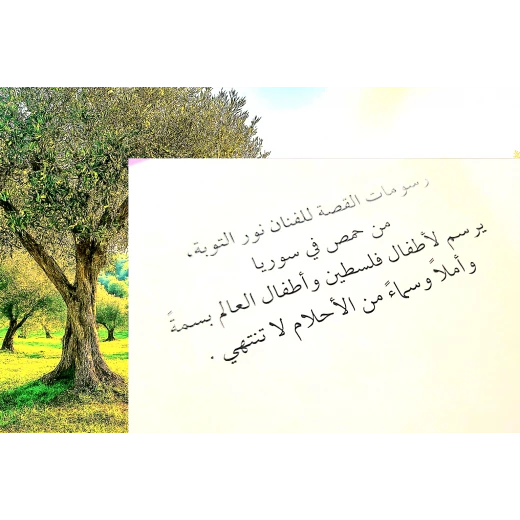 رسومات القصة للفنان نور التوبة،
من حمص في سوريا
يرسم لأطفال فلسطين وأطفال العالم بسمةً
وأملاً وسماءً من الأحلام لا تنتهي .